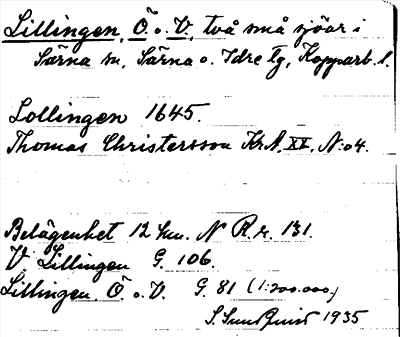 Lillingen, Ö. o. V., två små sjöar i
Särna sn, Särna o. Idre tg, Kopparb. l.
Lollingen 1645.
Thomas Christersson Kr.A. XX, N:o 4.
Belägenhet 12 km. N R.r. 131.
V. Lillingen G. 106.
Lillingen, Ö. o. V. G. 81 (1:200.000.)
S. Sundquist 1935